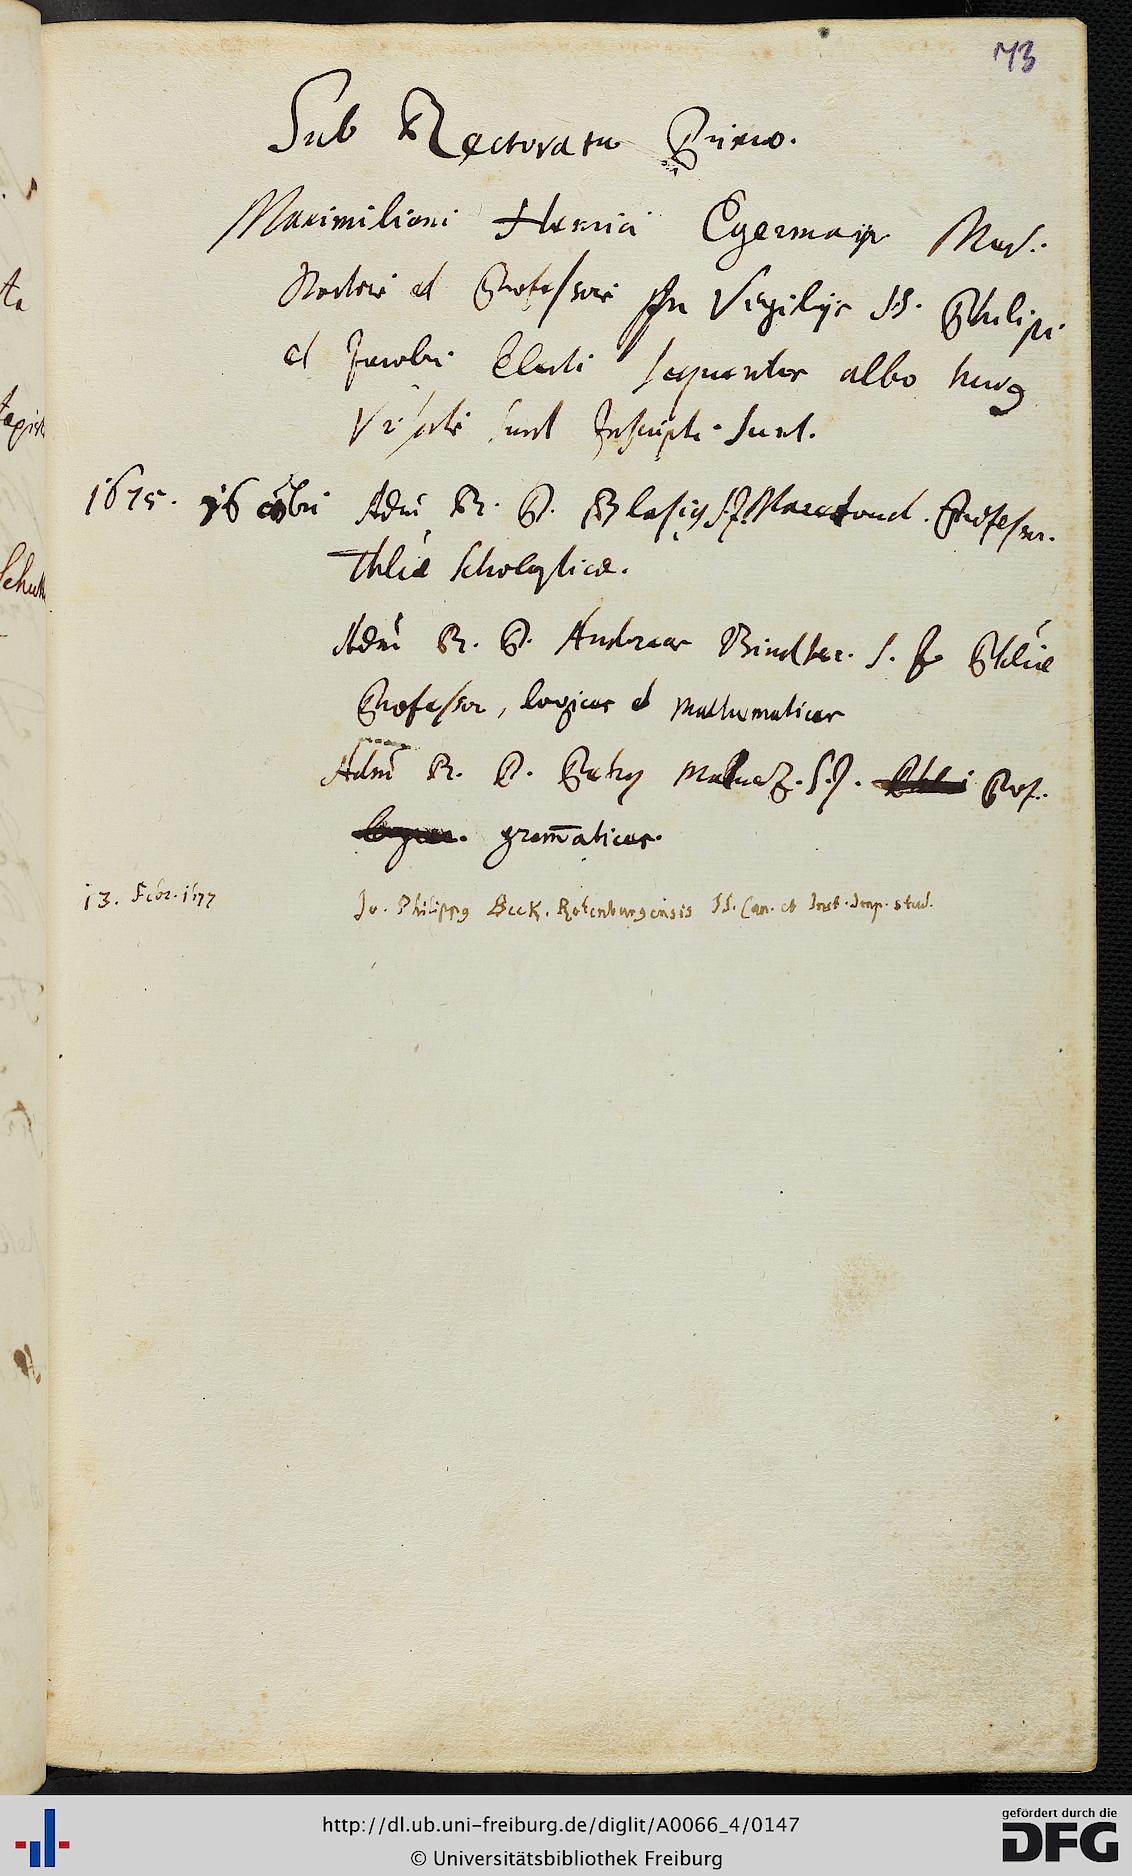 73
Sub Rectoratu Primo.
Maximiliani Henrici Egermayr Med:
Doctoris et Professoris In Vigilijs SS. Philipi
et Jacobi Electi sequentes albo huius
Vniversitatis sunt Inscripti sunt.
1675. 16 Adm R. P. Blasius S.J. Professor.
Thliae Scholasticae.
Adm R. P. Andreas S. J. Phliae
Professor, logicus et Mathematicus
Adm R. P. S.J. Prof.
gram̄aticus.
13. Febr. 1677 Jo. Philippus Beck. Rotenburgensis SS. Can. et Inst. Imp. stud.
http://dl.ub.uni-freiburg.de/diglit/A0066_4/0147
© Universitätsbibliothek Freiburg
gefördert durch die
DFG